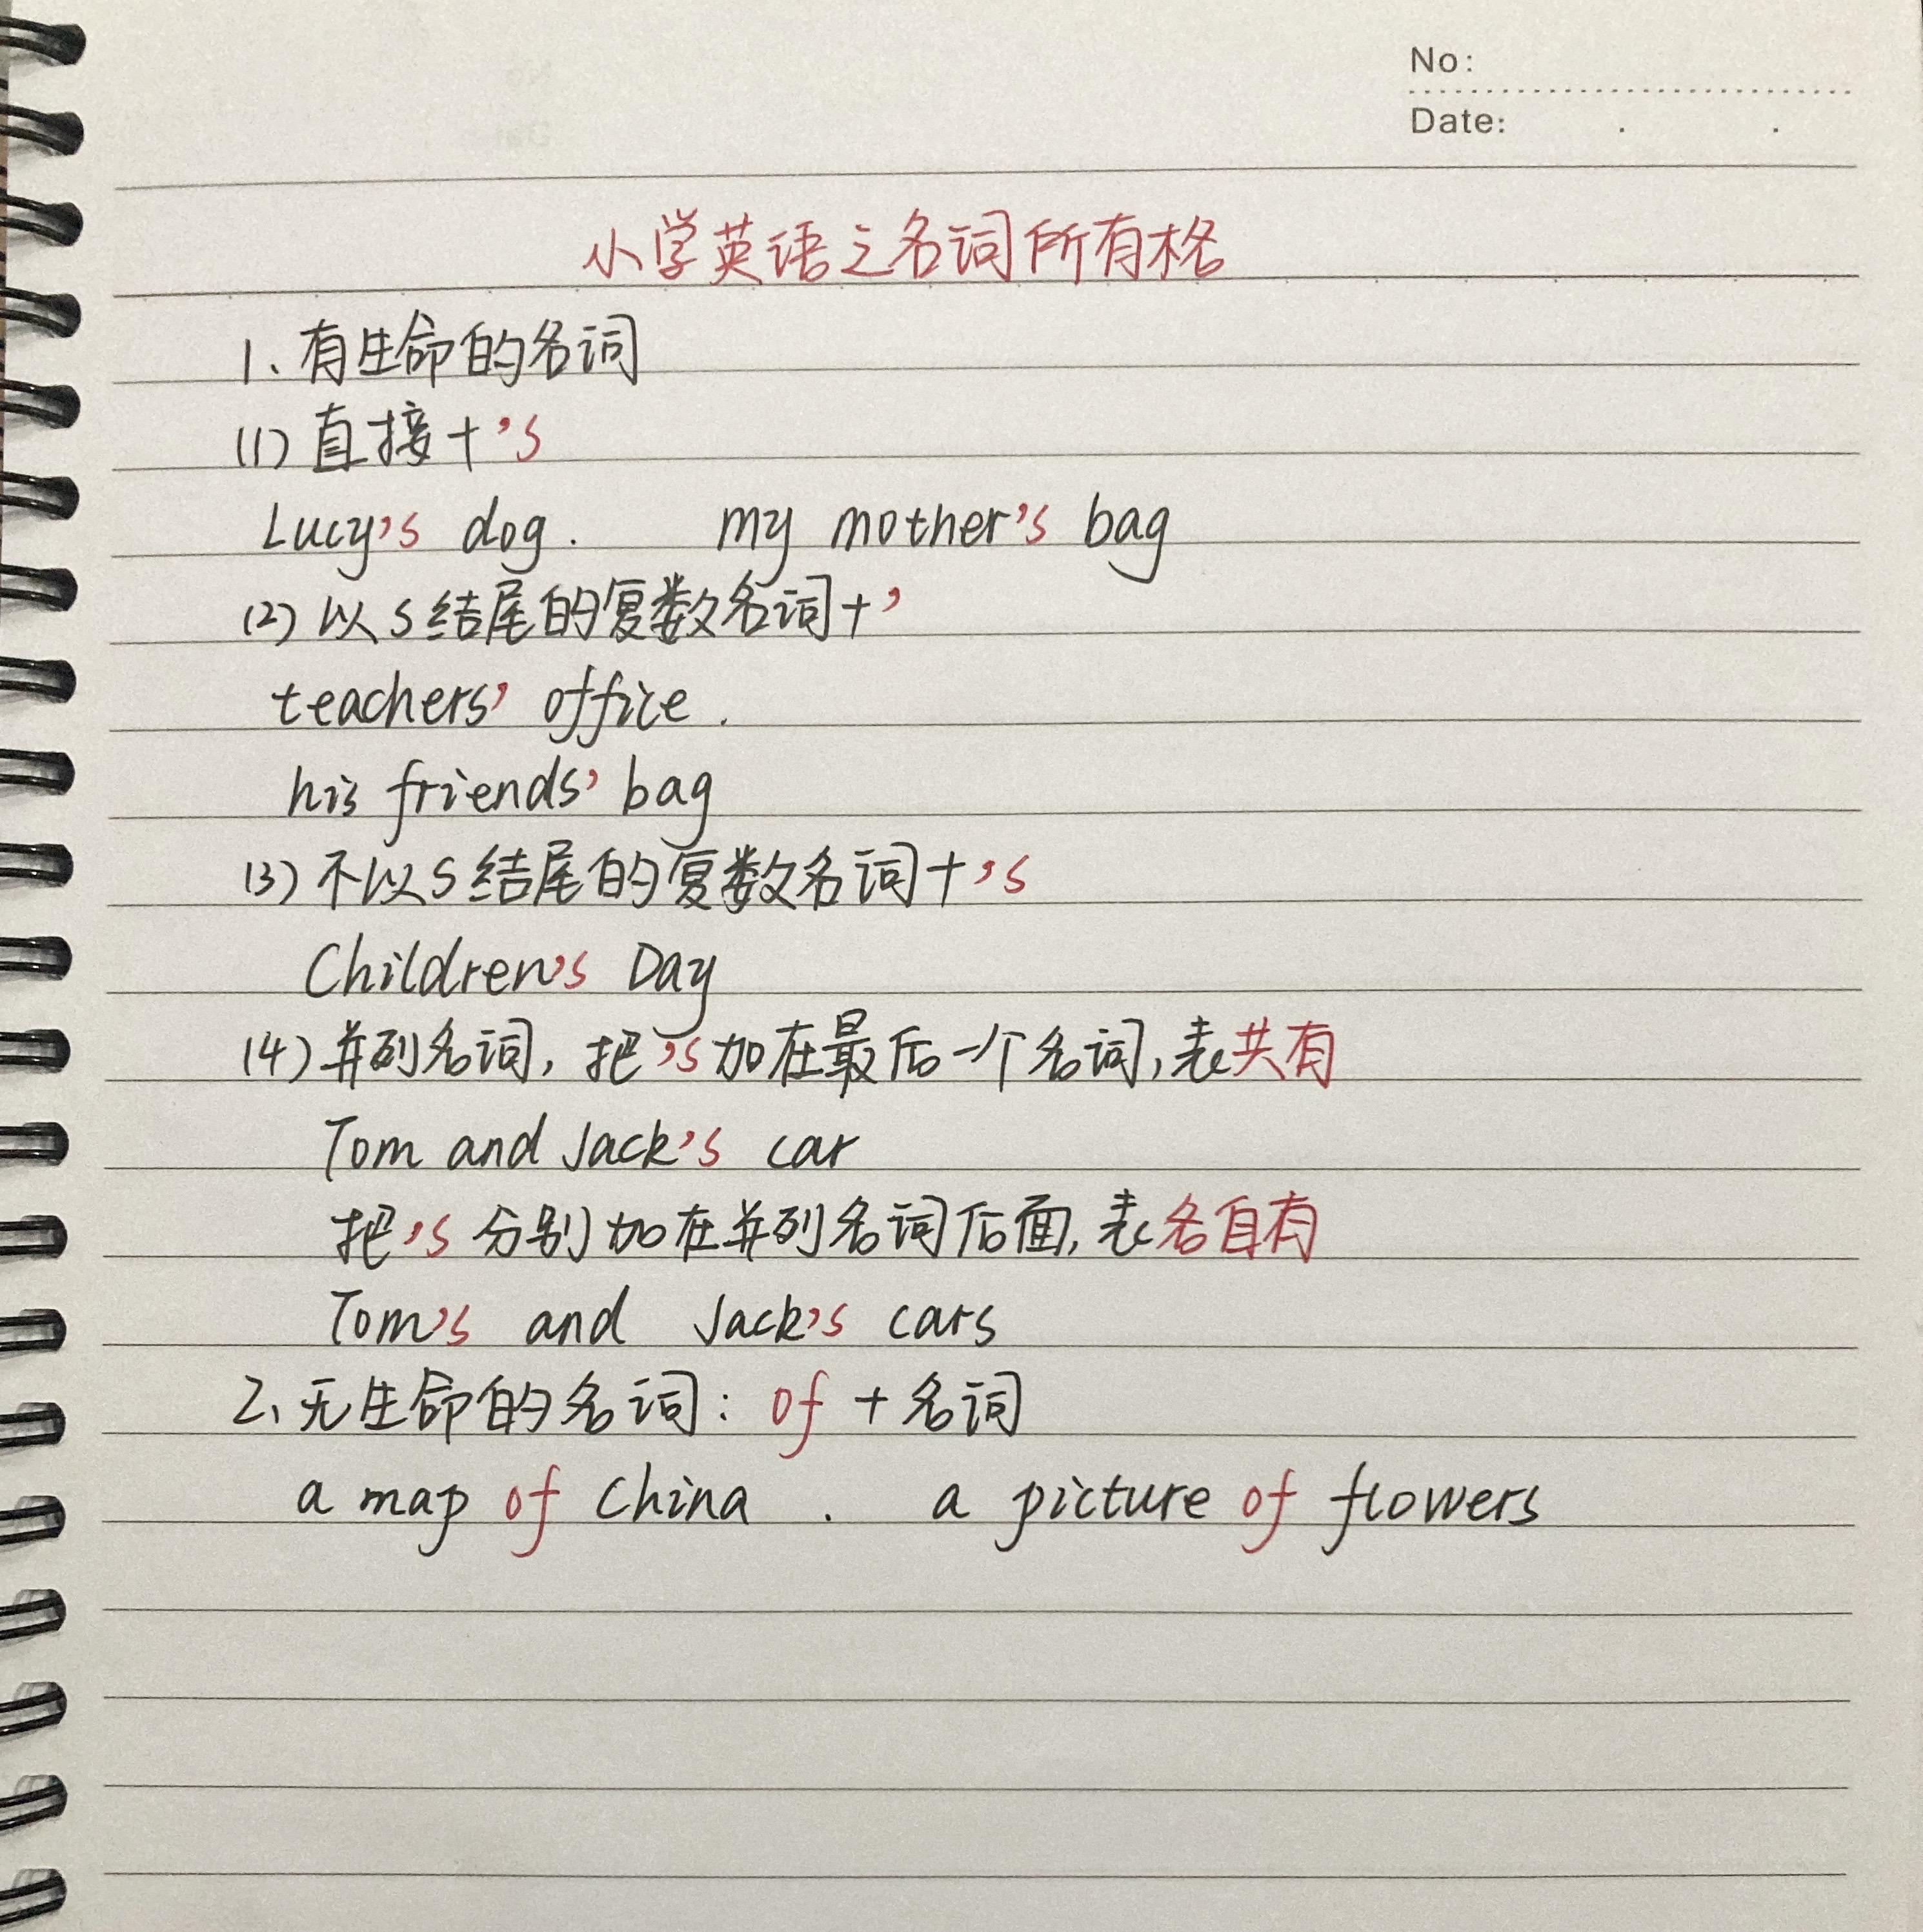 No:
Date: . .
小学英语之名词所有格
1、有生命的名词
(1) 直接+'s
Lucy's dog. my mother's bag
(2) 以s结尾的复数名词+'
teachers' office.
his friends' bag
(3) 不以s结尾的复数名词+'s
Children's Day
(4) 并列名词, 把's加在最后一个名词, 表共有
Tom and Jack's car
把's 分别加在并列名词后面, 表各自有
Tom's and Jack's cars
2、无生命的名词: of + 名词
a map of China . a picture of flowers